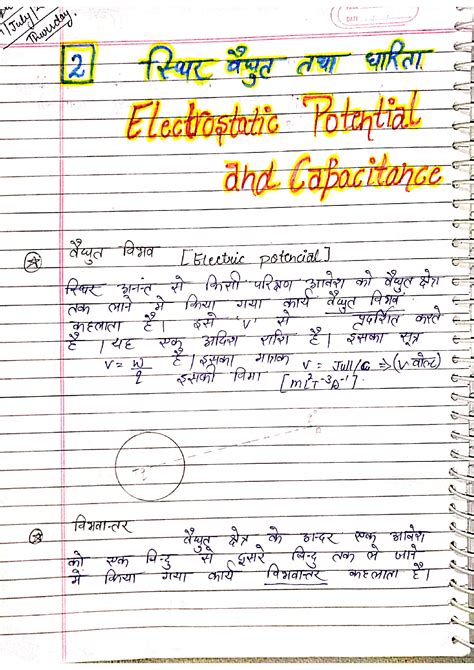 July
Thursday
DATE
2 स्थिर वैद्युत तथा धारिता
Electrostatic Potential
and Capacitance
वैद्युत विभव [Electric potencial]
स्थिर अनंत से किसी परिक्षण आवेश को वैद्युत क्षेत्र
तक लाने में किया गया कार्य वैद्युत विभव
कहलाता है। इसे 'V' से प्रदर्शित करते
है। यह एक अदिश राशि है। इसका सूत्र
V = W/q है। इसका मात्रक V = Jull/C => (V वोल्ट)
इसकी विमा [ML²T⁻³A⁻¹]
विभवान्तर
वैद्युत क्षेत्र के अन्दर एक आवेश
को एक बिन्दु से दूसरे बिन्दु तक ले जाने
में किया गया कार्य विभवान्तर कहलाता है।